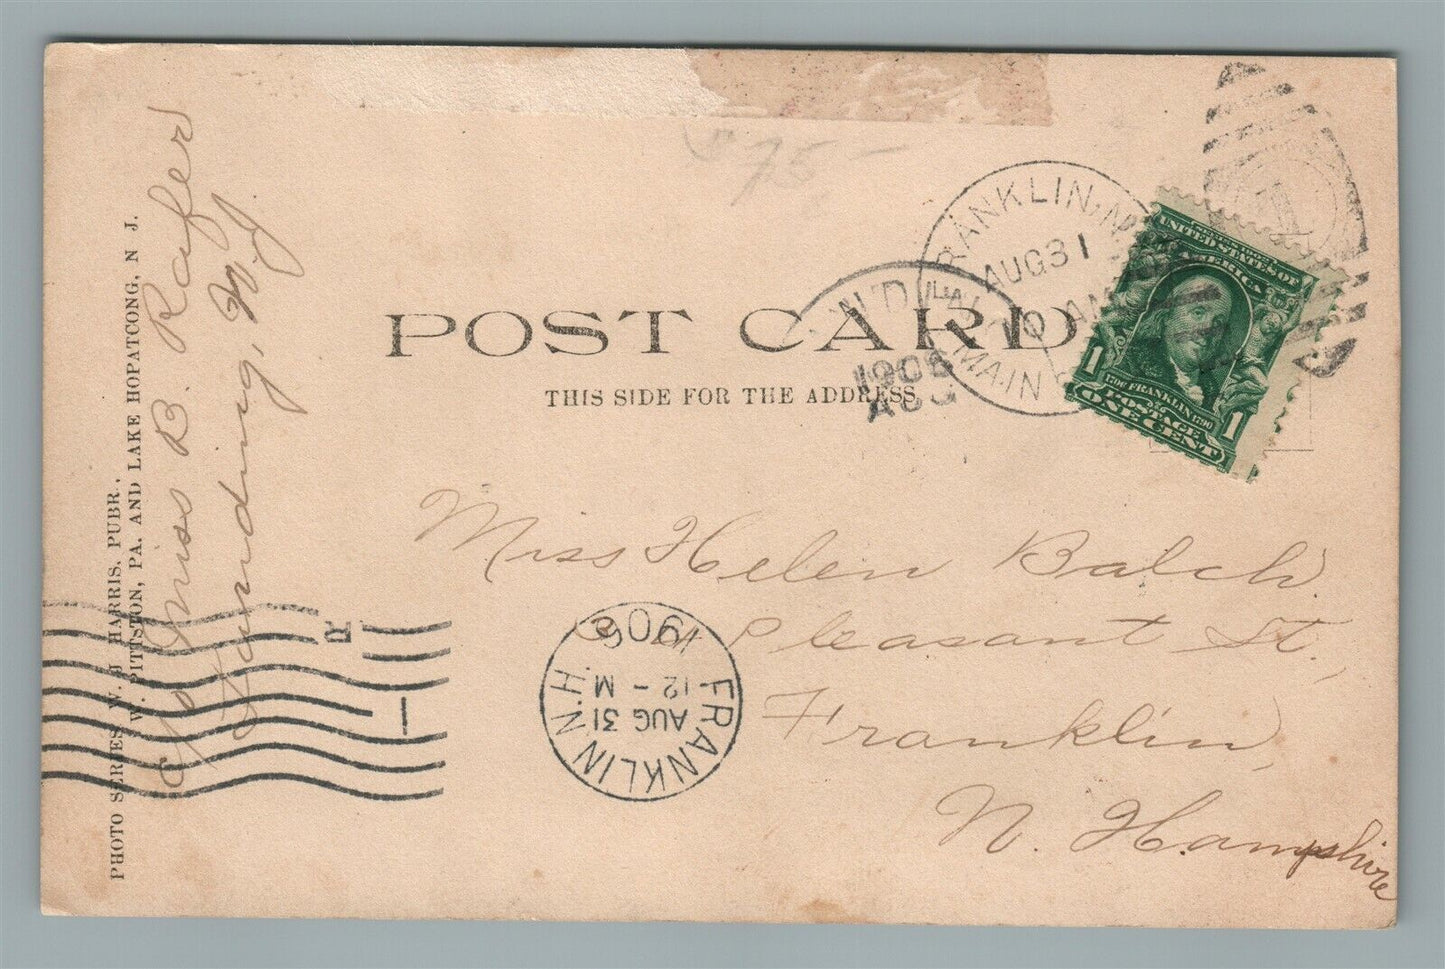 $75-
FRANKLIN, N.
AUG 31
AM
MAIN
REC'D
1906
AUG
POST CARD
THIS SIDE FOR THE ADDRESS
SERIES 1902
UNITED STATES OF
AMERICA
1706 FRANKLIN 1790
POSTAGE
ONE CENT
1 1
Miss Helen Balch
Pleasant St.,
Franklin,
N. Hampshire
FRANKLIN N.H.
AUG 31
12-M
1906
R
1
c/o Miss B. Rafer
Landing, N.J.
PHOTO SERIES, W. J. HARRIS, PUBR.,
W. PITTSTON, PA. AND LAKE HOPATCONG, N J.